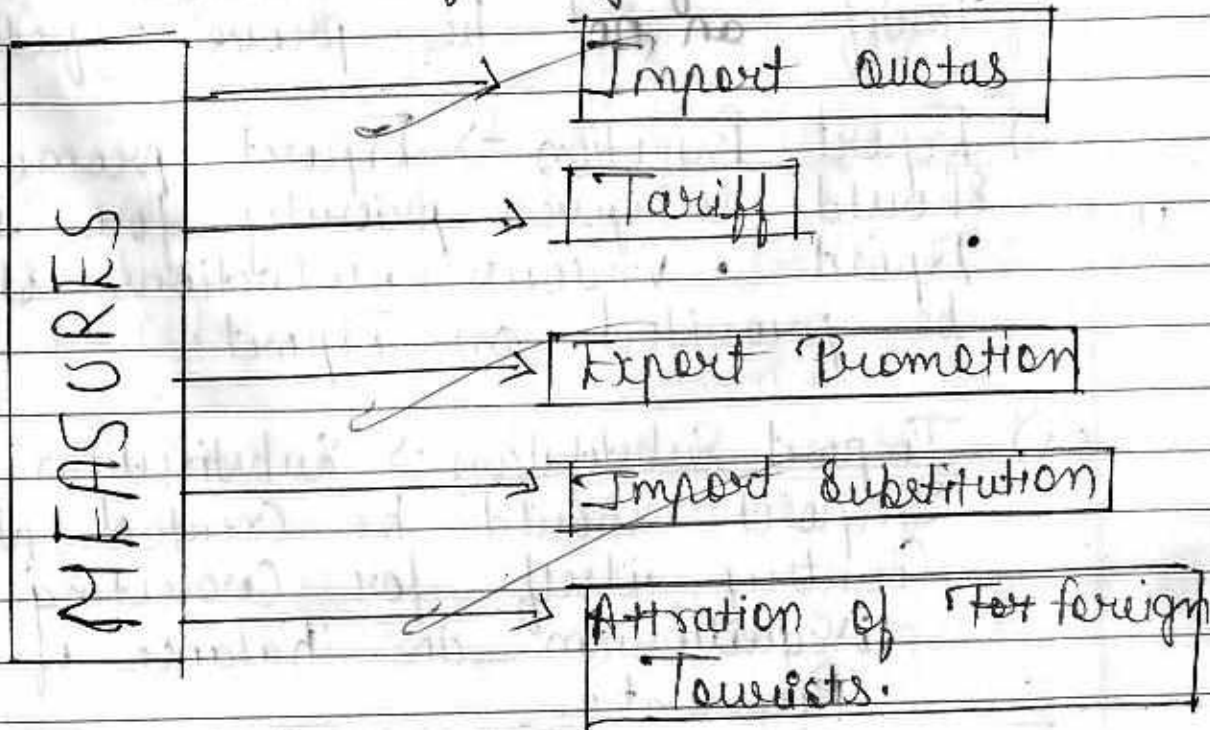 MEASURES
Import Quotas
Tariff
Export Promotion
Import Substitution
Attration of For foreign
Tourists.